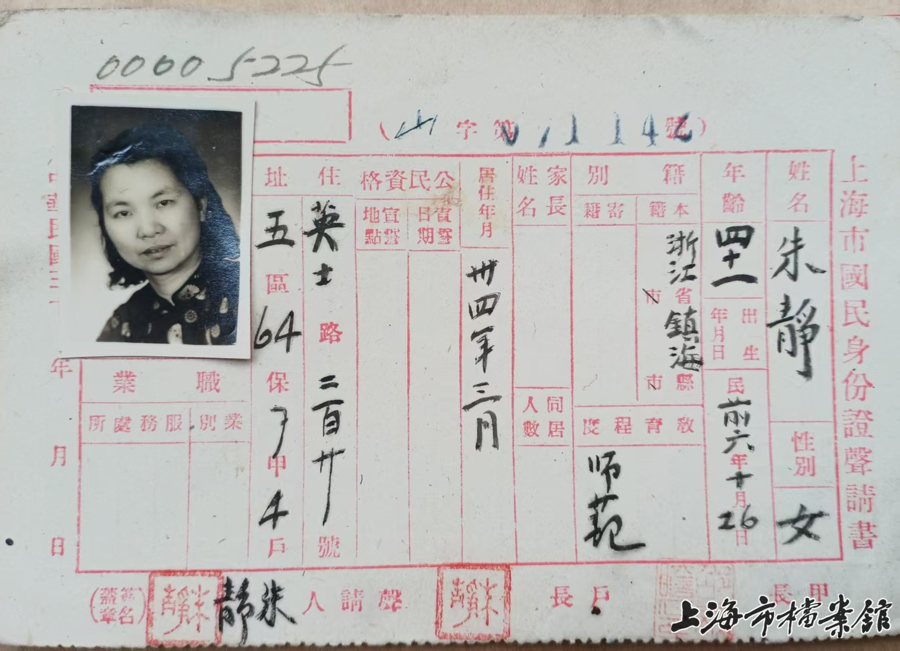 00005225
(山字第011142號)
上海市國民身份證聲請書
姓名 朱靜
性別 女
年齡 四十一
出生年月日 民前六年十月26日
籍別
本籍 浙江省鎮海縣
市 市
寄籍
教育程度 师范
家長姓名
同居人數
居住年月 卅四年三月
公民資格
宣誓日期
宣誓地點
住址 英士路二百廿號
五區64保7甲4戶
職業
業別
服務處所
年 月 日
甲長
戶長 朱靜
聲請人 朱靜 朱靜 (簽名蓋章)
上海市檔案館